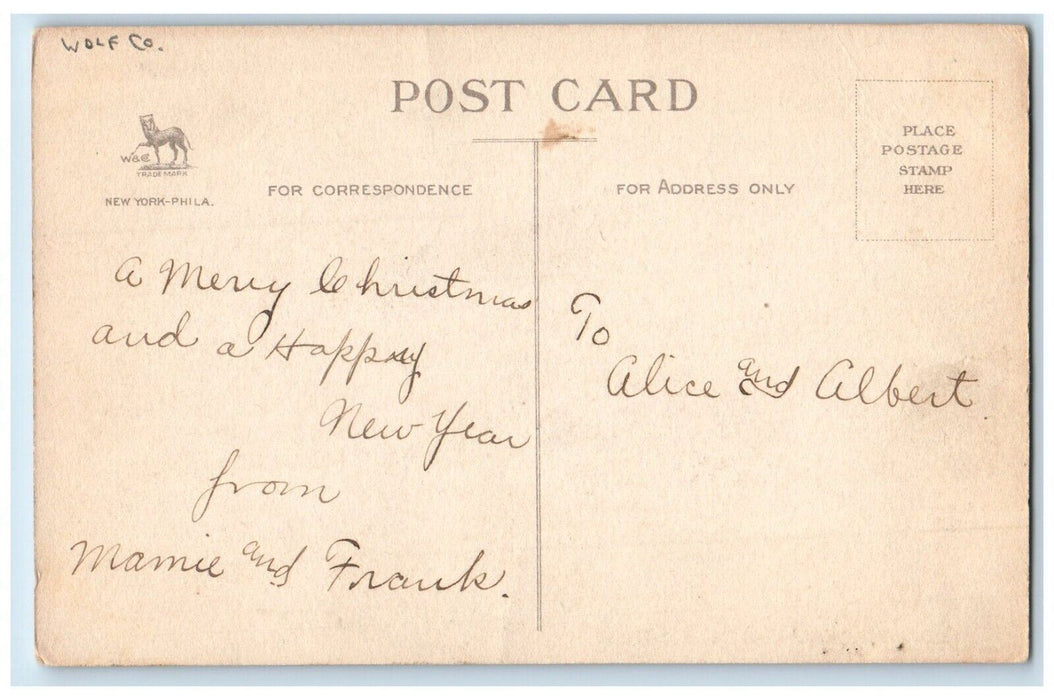 WOLF CO.
POST CARD
W&C
TRADE MARK
NEW YORK-PHILA.
FOR CORRESPONDENCE
FOR ADDRESS ONLY
PLACE
POSTAGE
STAMP
HERE
A Merry Christmas
and a Happy
New Year
from
Mamie and Frank.
To
Alice and Albert.